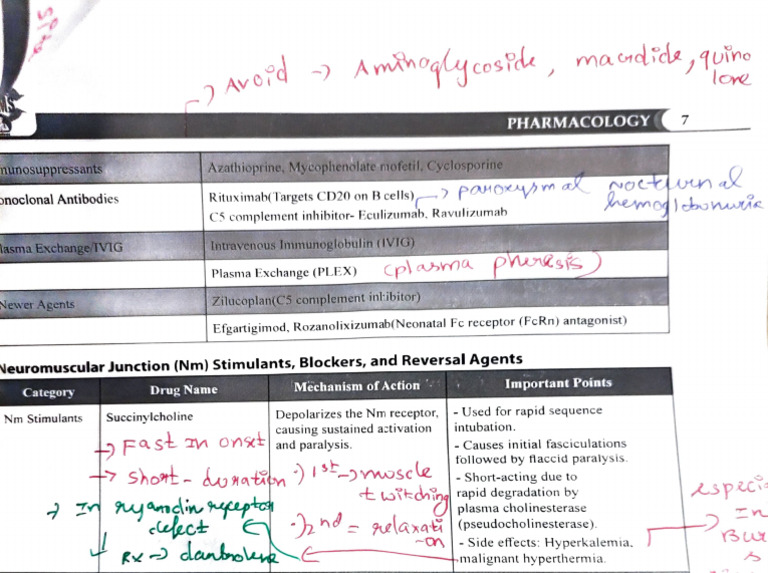 Avoid → Aminoglycoside, macrolide, quino
lone
PHARMACOLOGY 7
munosuppressants Azathioprine, Mycophenolate mofetil, Cyclosporine
onoclonal Antibodies Rituximab(Targets CD20 on B cells) → paroxysmal nocturnal
C5 complement inhibitor- Eculizumab, Ravulizumab hemoglobonuria
lasma Exchange/IVIG Intravenous Immunoglobulin (IVIG)
Plasma Exchange (PLEX) (plasma pheresis)
Newer Agents Zilucoplan(C5 complement inhibitor)
Efgartigimod, Rozanolixizumab(Neonatal Fc receptor (FcRn) antagonist)
Neuromuscular Junction (Nm) Stimulants, Blockers, and Reversal Agents
Category Drug Name Mechanism of Action Important Points
Nm Stimulants Succinylcholine Depolarizes the Nm receptor,
causing sustained activation
and paralysis.
- Used for rapid sequence
intubation.
- Causes initial fasciculations
followed by flaccid paralysis.
- Short-acting due to
rapid degradation by
plasma cholinesterase
(pseudocholinesterase).
- Side effects: Hyperkalemia,
malignant hyperthermia.
→ Fast in onset
→ short-duration
→ In ryanodin receptor
defect
↓ Rx → dantrolene
·) 1st → muscle
twitching
·) 2nd = relaxati
-on
especi
→ In
Bur
s